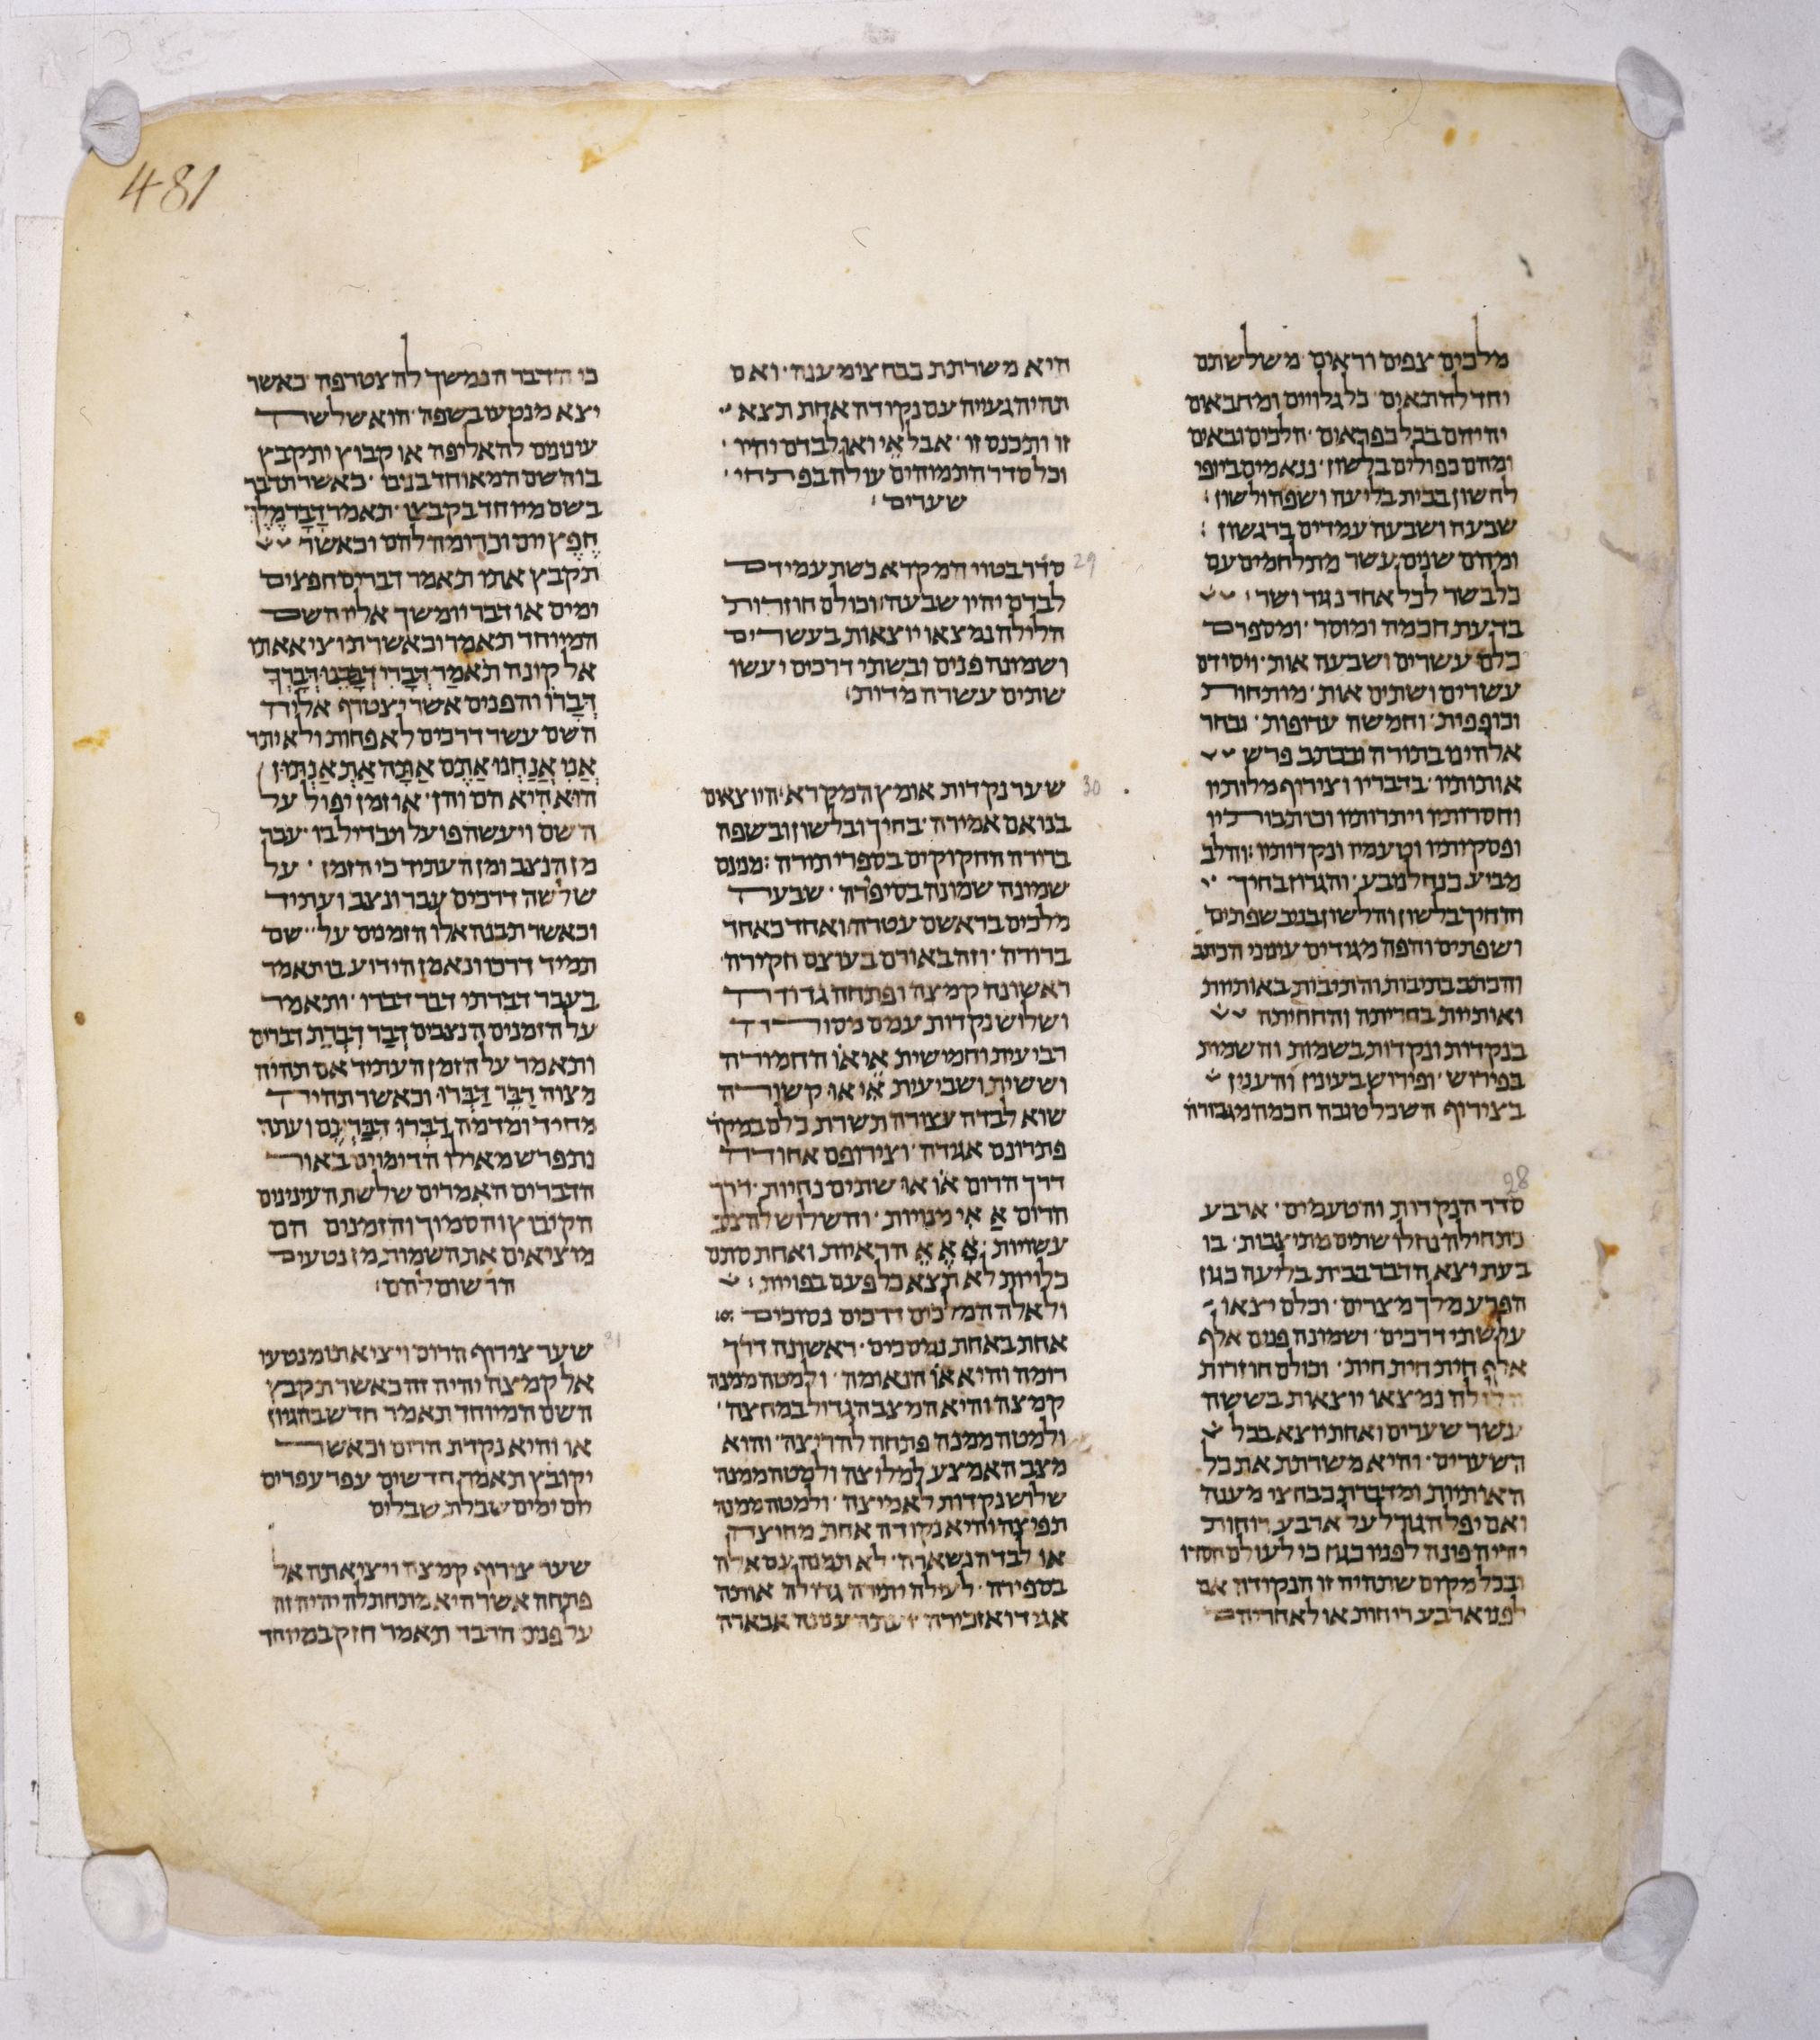 481
מלכים צפים וראים משלשתם
יחד להתאום כל גלויים ומחבאים
יהיהם בכל כפראום הלכים ובאים
ומהם כפולים בלשון נאמים ביופי
לחשון בבית בליעה ושפה ולשון
שבעה ושבעה עמדים ברגשון
ומהם שנים עשר מתלחמים עם
כל בשר לכל אחד נגד ושר
בדעת חכמה ומוסר ומספרם
כלם עשרים ושבעה אות ויסודם
עשרים ושתים אות מותחות
וכופפות וחמשה ערופות ובחר
אלהים בתורה ובכתב פרש
אותותיו בדבריו וצירוף מלותיו
וחסרותיו ויתרותיו
ופסקיותיו וטעמיו ונקדותיו והלב
מביע כנחל נובע והגרון בחיך
והחיך בלשון והלשון בניב שפתים
ושפתים והפה מגידים עיטני הכתב
והכתב בתיבות והתיבות באותיות
ואותיות בחריתה והחריתה
בנקדות ונקדות בשמות והשמות
בפירוש ופירוש בעינין והענין
בצירוף השכל טובה חכמה מגבורה
28
סדר הנקדות והטעמים ארבע
נתחילה נחלו שתים מתיצבות בו
בעת יצא הדבר בבית בליעה כגון
הפרע מלך מצרים וכלם יצאו
על שתי דרכים ושמונה פנים אלף
אלף חית חית חית וכולם חוזרות
חלילה נמצאו יוצאות בששה
עשר שערים ואחת יוצא בכל
השערים והיא משרתת את כל
האותיות ומדברת בבחצי מענה
ואם יפל הגורל על ארבע רוחות
יהיה פונה לפניו כגח כי לעולם חסדו
ובכל מקום שתהיה זו הנקודה אם
לפני ארבע ריחות או לאחריהם
היא משרתת בבחצי מענה ואם
תהיה געיה עם נקודה אחת תצא
זו ותכנס זו אבל אי ואו לבדם יהיו
וכל סדר התמוהים עולה בפתחי
שערים
29
סדר בטוי המקרא בשת עמידם
לבדם יהיו שבעה וכולם חוזרות
חלילה נמצאו יוצאות בעשרים
ושמונה פנים ובשתי דרכים יעשו
שתים עשרה מדות
30
שער נקדות אומץ המקרא היוצאים
בנואם אמירה בחיך ובלשון ובשפה
ברורה החקוקים בספרי תורה מפנס
שמונה שמונה בסיפרה שבעה
מלכים בראשם עטרה ואחד כאחד
ברורה וזה באורם בעוצם חקירה
ראשונה קמצה ופתחה גדודה
ושלוש נקדות עמם מסורה
רביעית וחמישית אי או החמורה
וששית ושביעית אי או קשורה
שוא לבדה עצורה תשרת כלם במקרא
פתרונם אגדה וצירופם אחודה
דרך הרום או או שתים נחיות דרך
חרום א אי מנויות והשלוש להצב
עשויות א א א הראיות ואחת סתם
כלויות לא תצא כל פעם בפויות
ולאלה המלכים דרכים נסוכים
אחת באחת נמסכים ראשונה דרך
רומה והיא או הנאומה ולמטה ממנה
קמצה והיא המצב הגדול במחצה
ולמטה ממנה פתחה להריצה והוא
מצב האמצע למלוצה ולמטה ממנה
שלוש נקדות לאמיצה ולמטה ממנה
תפוצה והיא נקודה אחת מחוצה
או לבדה נשארה לא תמנה עם אלה
בספירה לעילה יתירה גדולה אותה
אגיד ואזכירה ועתה עטנה אבארה
כי הדבר הנמשך להצטרפה כאשר
יצא מנטעו בשפה הוא שלשה
עינונים להאליפה או קבוץ יתקבץ
בו השם המאוחד בנים כאשר תדבר
בשם מיוחד בקבצו תאמר דָבָר מֶלֶךְ
חֵפֶץ יום וכדומה להם וכאשר
תקבץ אותו תאמר דברים חפצים
ימים או דבר יומשך אליו השם
המיוחד תאמר וכאשר תוציא אותו
אל קונה תאמר דְּבָרִי דְּבָרֵנוּ דְּבָרְךָ
דְּבָרוֹ והפנים אשר יצטרף אליהן
השם עשר דרכים לא פחות ולא יתר
אֲנִי אֲנַחְנוּ אַתֶּם אַתָּה אַתְּ אַתֵּן
הוּא הִיא הם והן או זמן יפול על
השם ויעשה פועל ויבדיל בו עבר
מן הנצב ומן העתיד כי הזמן על
שלשה דרכים עבר ונצב ועתיד
וכאשר תבנה אלו הזמנים על שם
תמיד דרכו ונאמן הידוע בו תאמר
בעבר דברתי דבר דברו ותאמר
על הזמנים הנצבים דְבַר דִבְרַת דברים
ותאמר על הזמן העתיד אם תהיה
מצוה דַבֵּר דַּבְּרוּ וכאשר תהיה
מחיד ומדמה דברו דבר גם ועתה
נתפרש מאילו הדימוים באור
הדברים האמרים שלשת העינינים
הקיבוץ והסמוך והזמנים הם
מוציאים את השמות מן נטעים
הרשום להם
31
שער צירוף הרום ויציאתו מנטעו
אל קמצה יהיה זה כאשר תקבץ
השם המיוחד תאמר חדש בהגיון
או והיא נקדת הרום וכאשר
יקובץ תאמר חדשים עפר עפרים
יום ימים שבלת שבלים
שער צירוף קמצה ויציאתה אל
פתחה אשר היא מתחתלה יהיה זה
על פנים הדבר תאמר חזק במיוחד